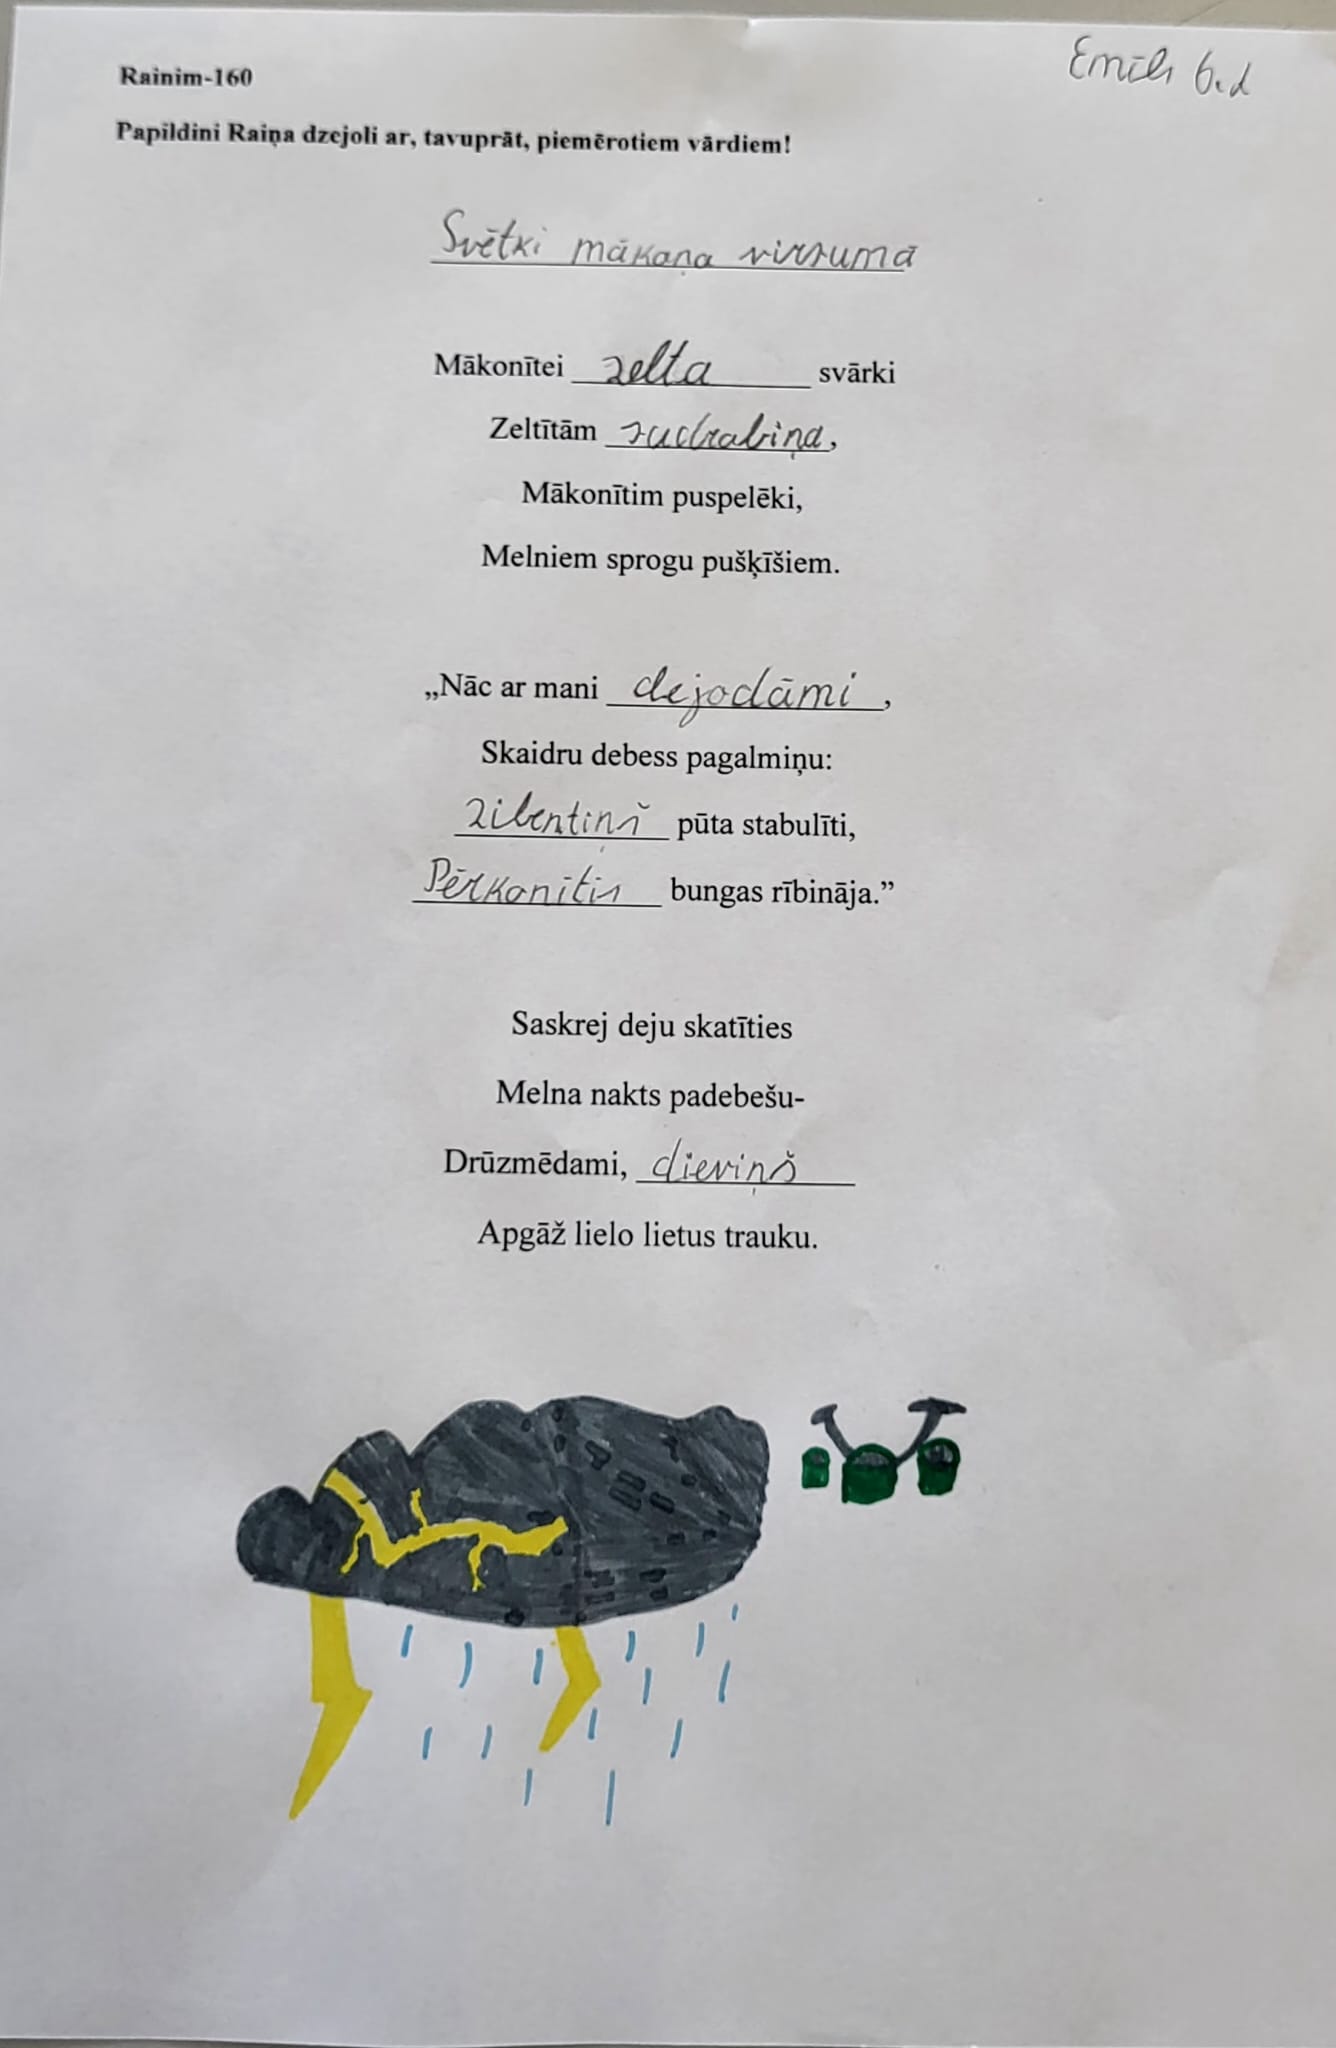 Emīls 6.d
Rainim-160
Papildini Raiņa dzejoli ar, tavuprāt, piemērotiem vārdiem!
Svētki mākoņa virsumā
Mākonītei zelta svārki
Zeltītām sudrabiņa,
Mākonītim puspelēki,
Melniem sprogu pušķīšiem.
„Nāc ar mani dejodāmi,
Skaidru debess pagalmiņu:
Zibentiņš pūta stabulīti,
Pērkonītis bungas rībināja.”
Saskrej deju skatīties
Melna nakts padebešu-
Drūzmēdami, dieviņš
Apgāž lielo lietus trauku.